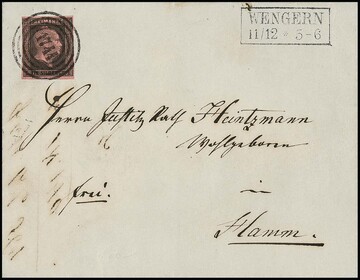 WENGERN
11/12 * 5-6
Herrn Justitz Rath Heintzmann
Wohlgeboren
frei.
in
Hamm.